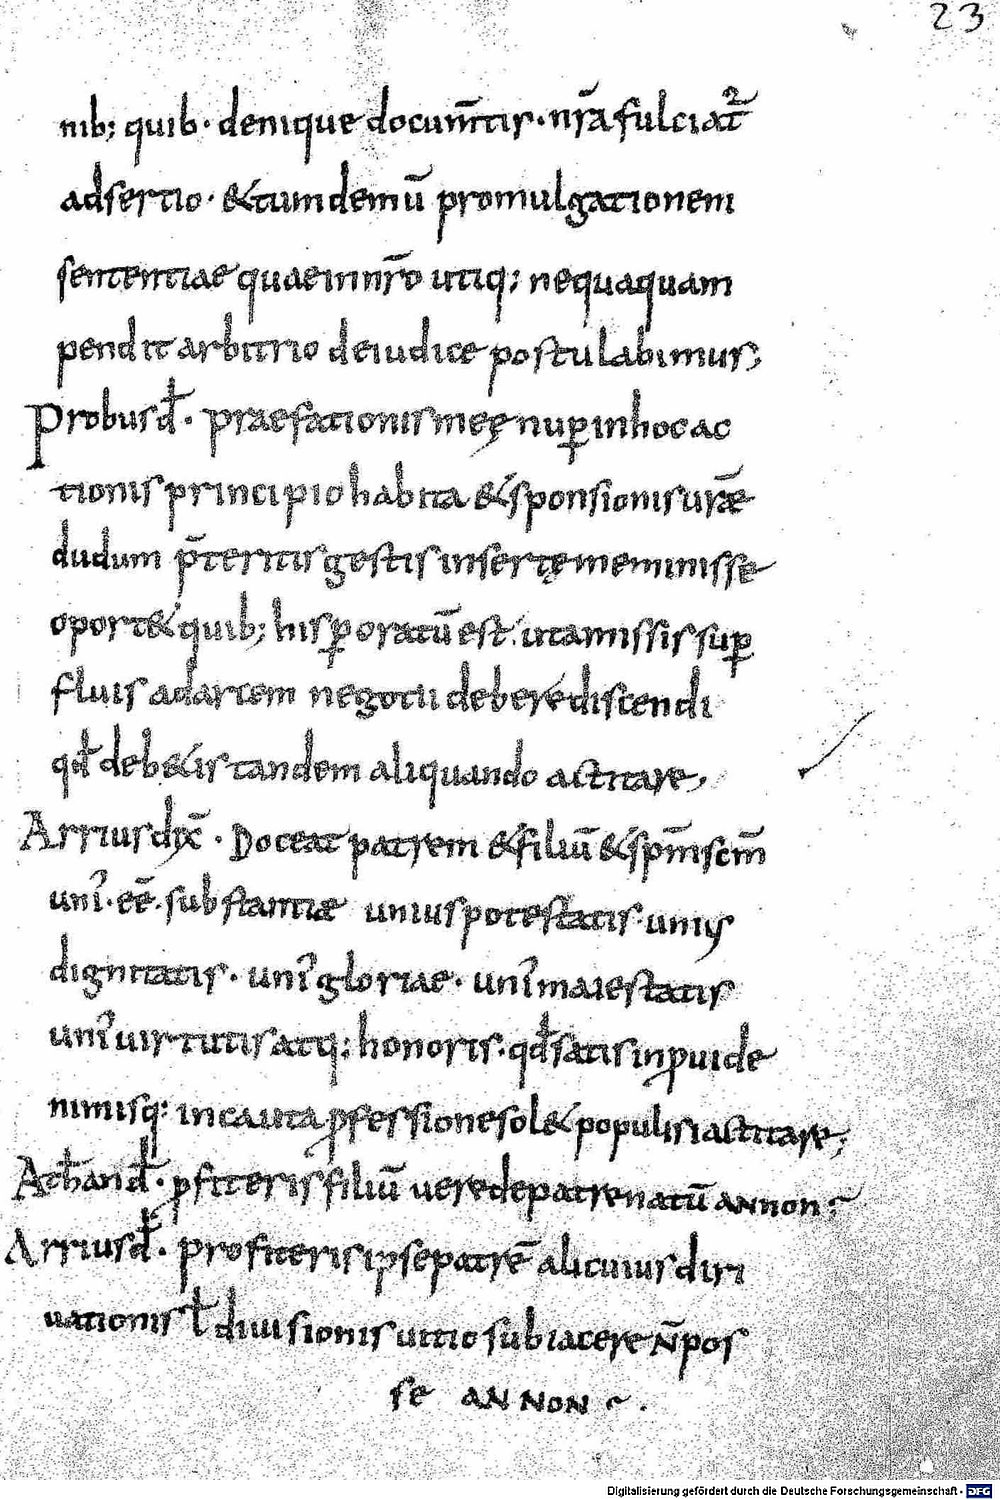 23
nib; quib· denique docum̄tis· nr̄a fulciat̄
adsertio· &tum demū promulgationem
sententiae quae in nr̄o utiq; nequaquam
pendit arbitrio de iudice postulabimus;
Probus đ· praefationis meę nuꝑ in hoc ac
tionis principio habita & sponsionis ur̄ae
dudum p̄teritis gestis insertę meminisse
oport& quib; his ꝑoratū est· ut amissis suꝑ
fluis ad artem negotii debere discendi
qđ deb&is tandem aliquando actitare,
Arrius dix̄· Doceat patrem & filiū & sp̄m sc̄m
uni᾽· ee᾽· substantiae unius potestatis· unius
dignitatis· uni᾽ gloriae· uni᾽ maiestatis
uni᾽ uirtutis atq; honoris· qđ satis inꝓuide
nimisq; incauta ꝓfessione sol& populis iactitare;
Athan̄ đ· ꝓfiteris filiū uere de patre natū an non;
Arrius đ· profiteris ipse patrē alicuius diri
uationis ł diuisionis uitio subiacere n̄ pos
se an non ~·
Digitalisierung gefördert durch die Deutsche Forschungsgemeinschaft - DFG